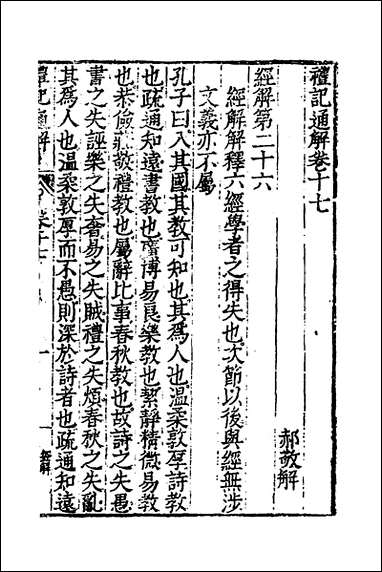 禮記通解卷十七
郝敬解
經解第二十六
經解解釋六經學者之得失也次節以後與經無涉
文義亦不屬
孔子曰入其國其教可知也其為人也溫柔敦厚詩教
也疏通知遠書教也廣博易良樂教也絜靜精微易教
也恭儉莊敬禮教也屬辭比事春秋教也故詩之失愚
書之失誣樂之失奢易之失賊禮之失煩春秋之失亂
其為人也溫柔敦厚而不愚則深於詩者也疏通知遠
禮記通解
卷十七
一
經解